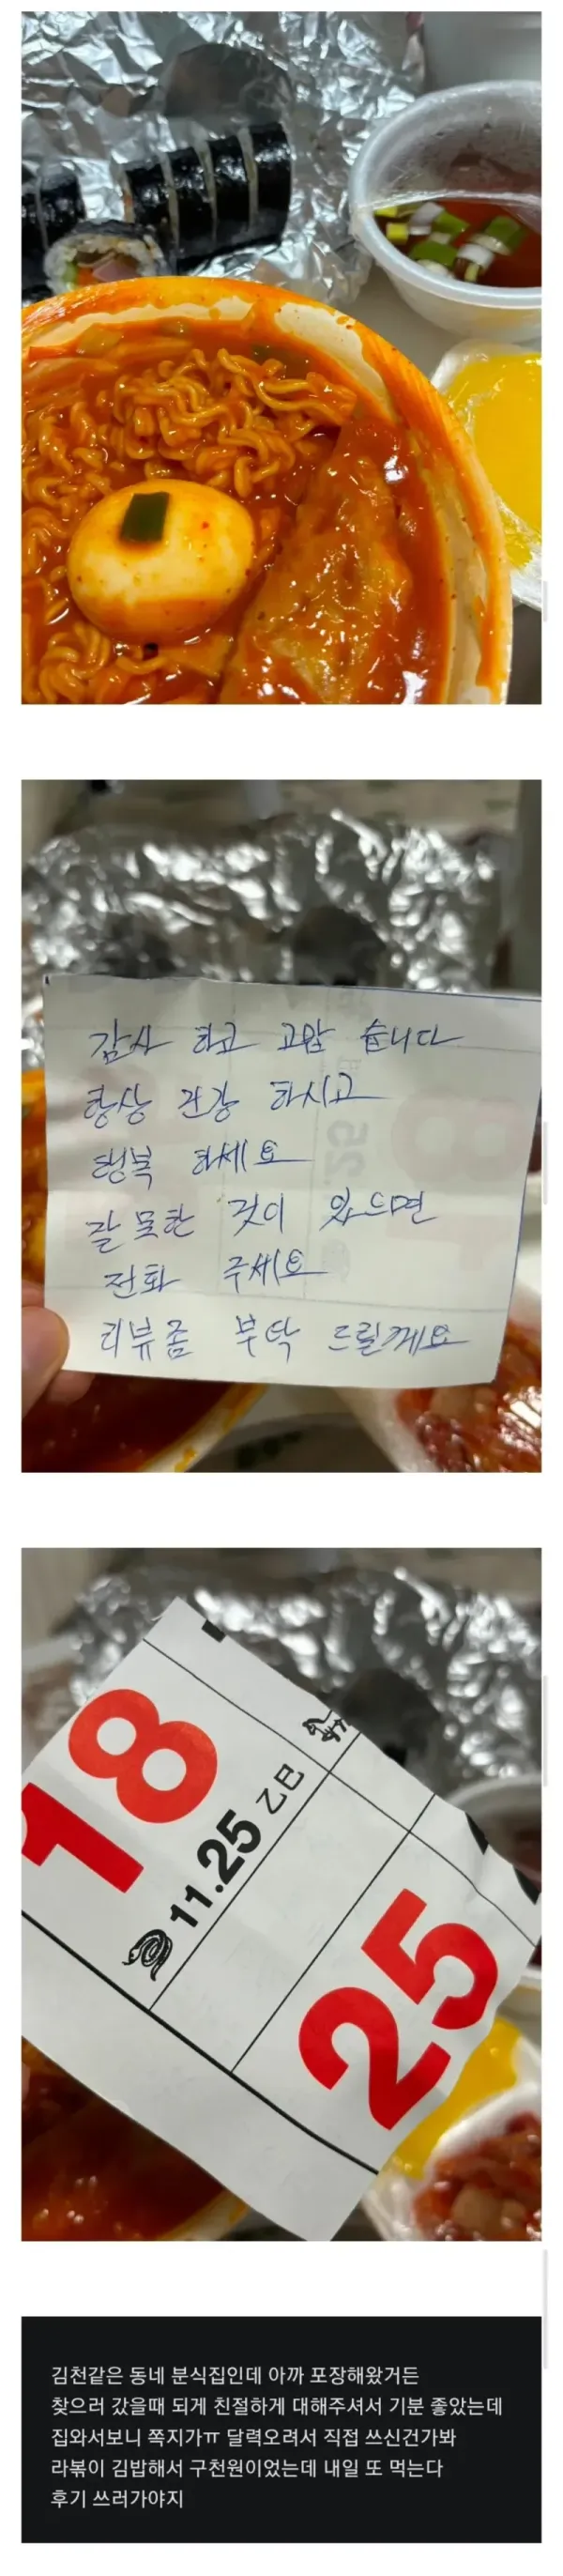 감사 하고 고맙 습니다
항상 건강 하시고
행복 하세요
잘 못한 것이 있으면
전화 주세요
리뷰좀 부탁 드릴께요
18
11.25 乙巳
25
김천같은 동네 분식집인데 아까 포장해왔거든
찾으러 갔을때 되게 친절하게 대해주셔서 기분 좋았는데
집와서보니 쪽지가ㅠ 달력오려서 직접 쓰신건가봐
라볶이 김밥해서 구천원이었는데 내일 또 먹는다
후기 쓰러가야지